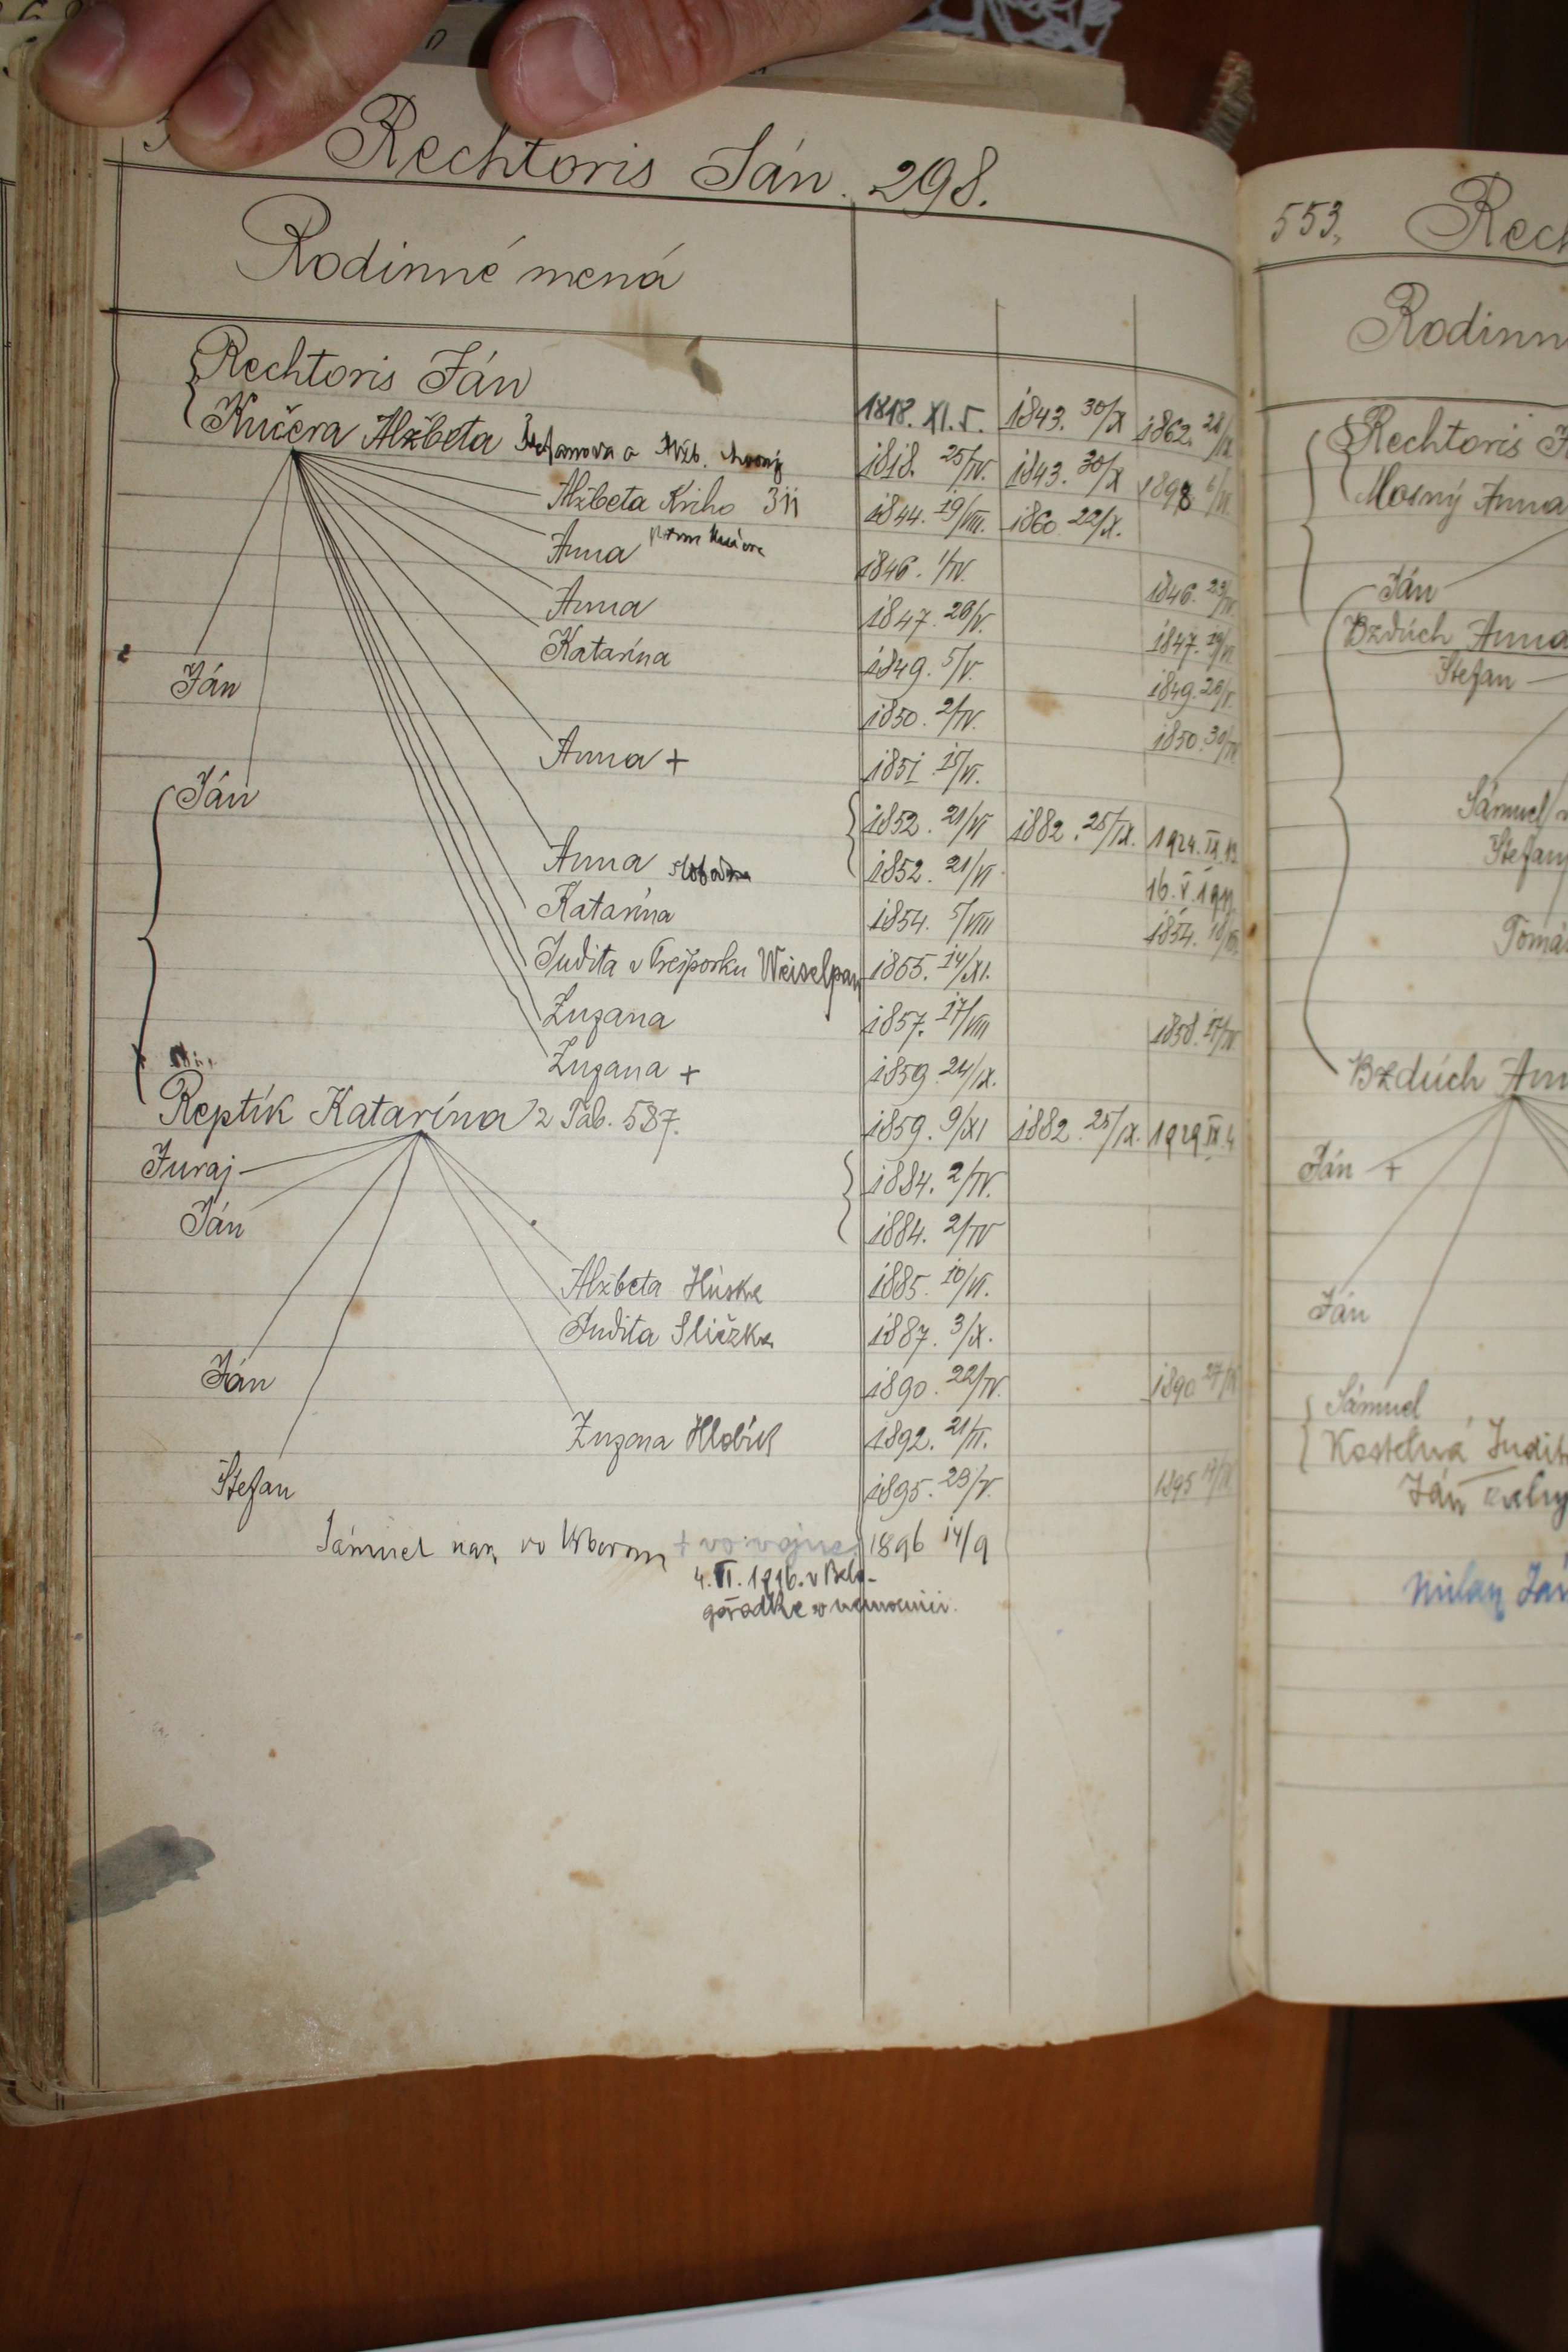 Rechtoris Ján. 298.
Rodinné mená
Rechtoris Ján 1818. XI. 5. 1843. 30/X 1862. 28/IX
Kučera Alžbeta Štefanova a Alžb. 1818. 25/IV. 1843. 30/X 1898 6/VI
Alžbeta Kriho 311 1844. 19/VIII. 1860 22/X.
Anna 1846. 1/IV. 1846. 23/IV
Anna 1847. 26/V. 1847. 19/VI
Katarína 1849. 5/V. 1849. 26/V.
Ján 1850. 2/IV. 1850. 30/IV
Anna + 1851. 15/VI.
Ján 1852. 21/VI 1882. 25/IX. 1924. IX. 13
Anna slobodna 1852. 21/VI 16. V. 19
Katarína 1854. 5/VIII 1854. 18/VIII.
Judita v Prešporku Weiselpan 1855. 14/XI.
Zuzana 1857. 17/VIII 1858. 17/IV
Zuzana + 1859. 24/IX.
Reptík Katarína /2 Tab. 587. 1859. 9/XI 1882. 25/IX. 1929 IX. 4
Juraj 1884. 2/IV.
Ján 1884. 2/IV
Alžbeta Húska 1885. 10/VI.
Judita Sližka 1887. 3/X.
Ján 1890. 22/IV. 1890 27/IV
Zuzana Hlobík 1892. 21/II.
Štefan 1895. 23/V. 1895
Sámuel nar. vo + vo vojne 1896 14/9
4. VI. 1916. v Belo-
gorodke v nemocnici.
553. Rech
Rodinn
Rechtoris J
Mosný Anna
Ján
Bzdúch Anna
Štefan
Sámuel
Štefan
Tomá
Bzdúch Ann
Ján +
Ján
Sámuel
Kostelná Judit
Ján
Milan Ján